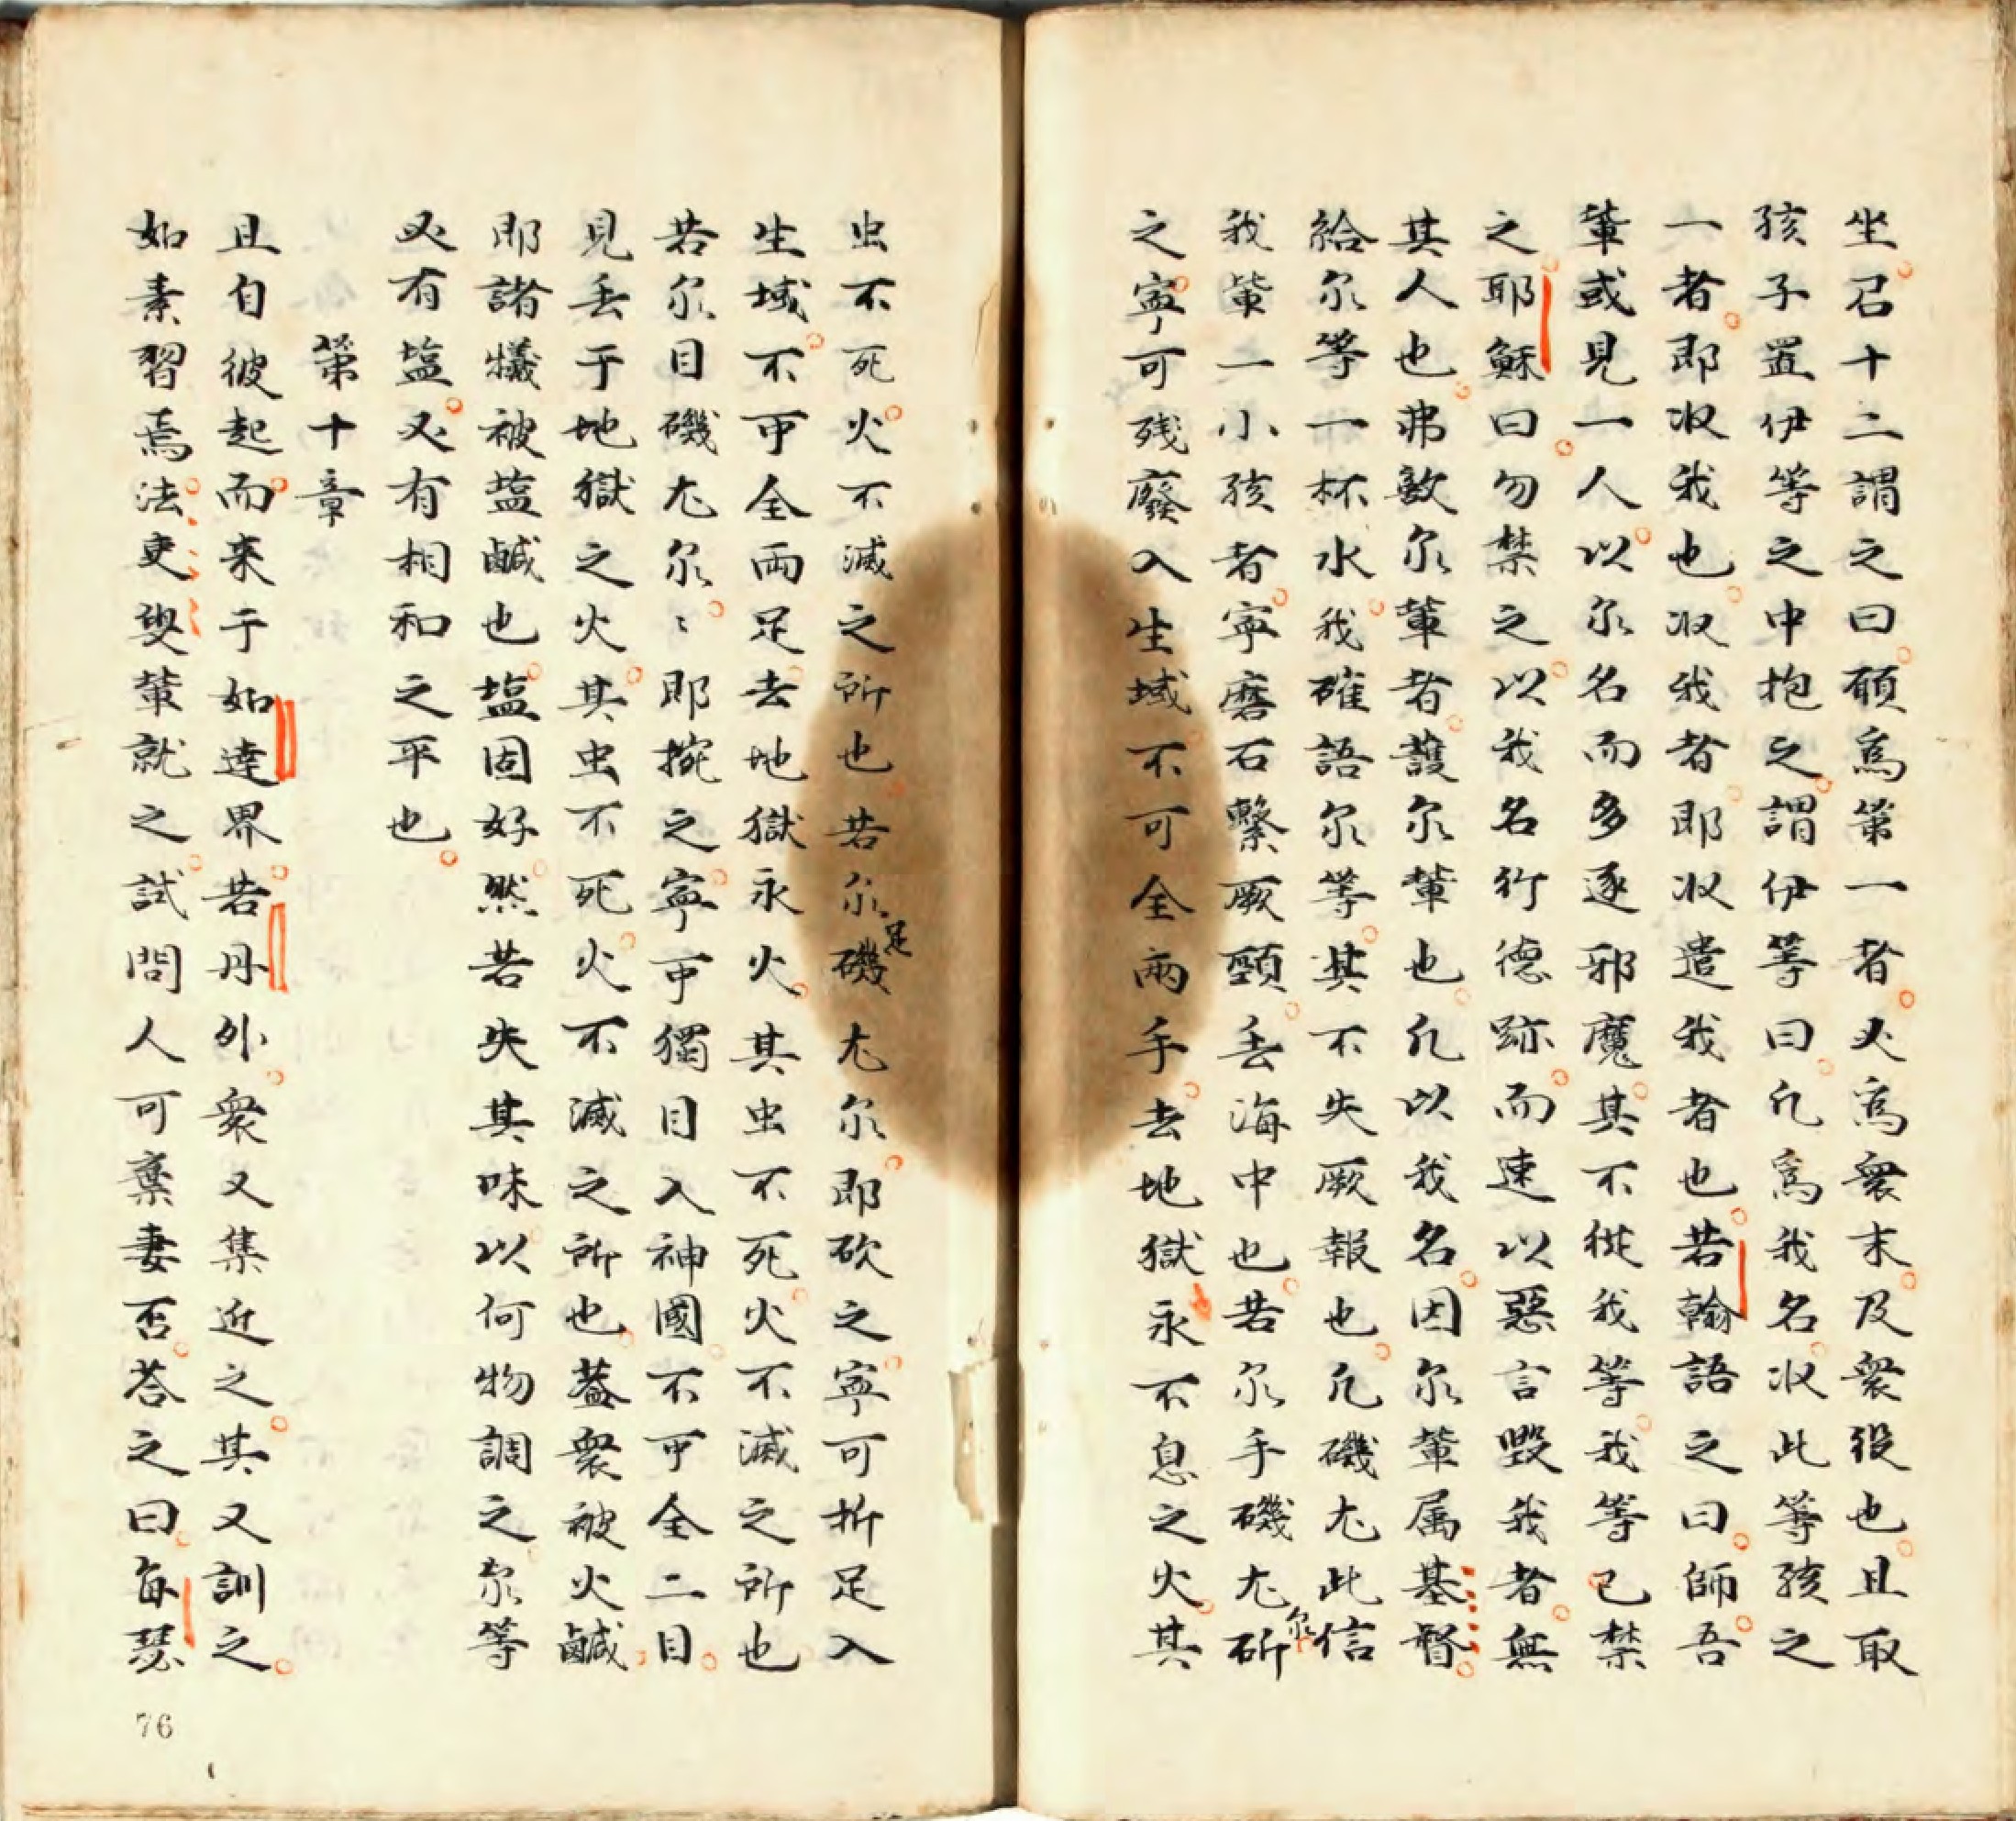 坐召十二謂之曰願為第一者必為衆末及衆役也且取
孩子置伊等之中抱之謂伊等曰凡為我名收此等孩之
一者即収我也収我者即収遣我者也若翰語之曰師吾
輩或見一人以尔名而多逐邪魔其不從我等我等已禁
之耶穌曰勿禁之以我名行德跡而速以惡言毀我者無
其人也弗敵尔輩者護尔輩也凡以我名因尔輩属基督
給尔等一杯水我確語尔等其不失厥報也凡磯尢此信
我輩一小孩者寧磨石繫厥頸丢海中也若尔手磯尢尔斫
之寧可残廢入生域不可全兩手去地獄永不息之火其
虫不死火不滅之所也若尔足磯尢尔即砍之寧可折足入
生域不可全両足去地獄永火其虫不死火不滅之所也
若尔目磯尢尔〻即捥之寧可獨目入神國不可全二目
見丢于地獄之火其虫不死火不滅之所也蓋衆被火鹹
即諸犧被塩鹹也塩固好然若失其味以何物調之尔等
必有塩又有相和之平也
第十章
且自彼起而来于如達界若丹外衆又集近之其又訓之
如素習焉法吏叟輩就之試問人可棄妻否荅之曰每瑟
76